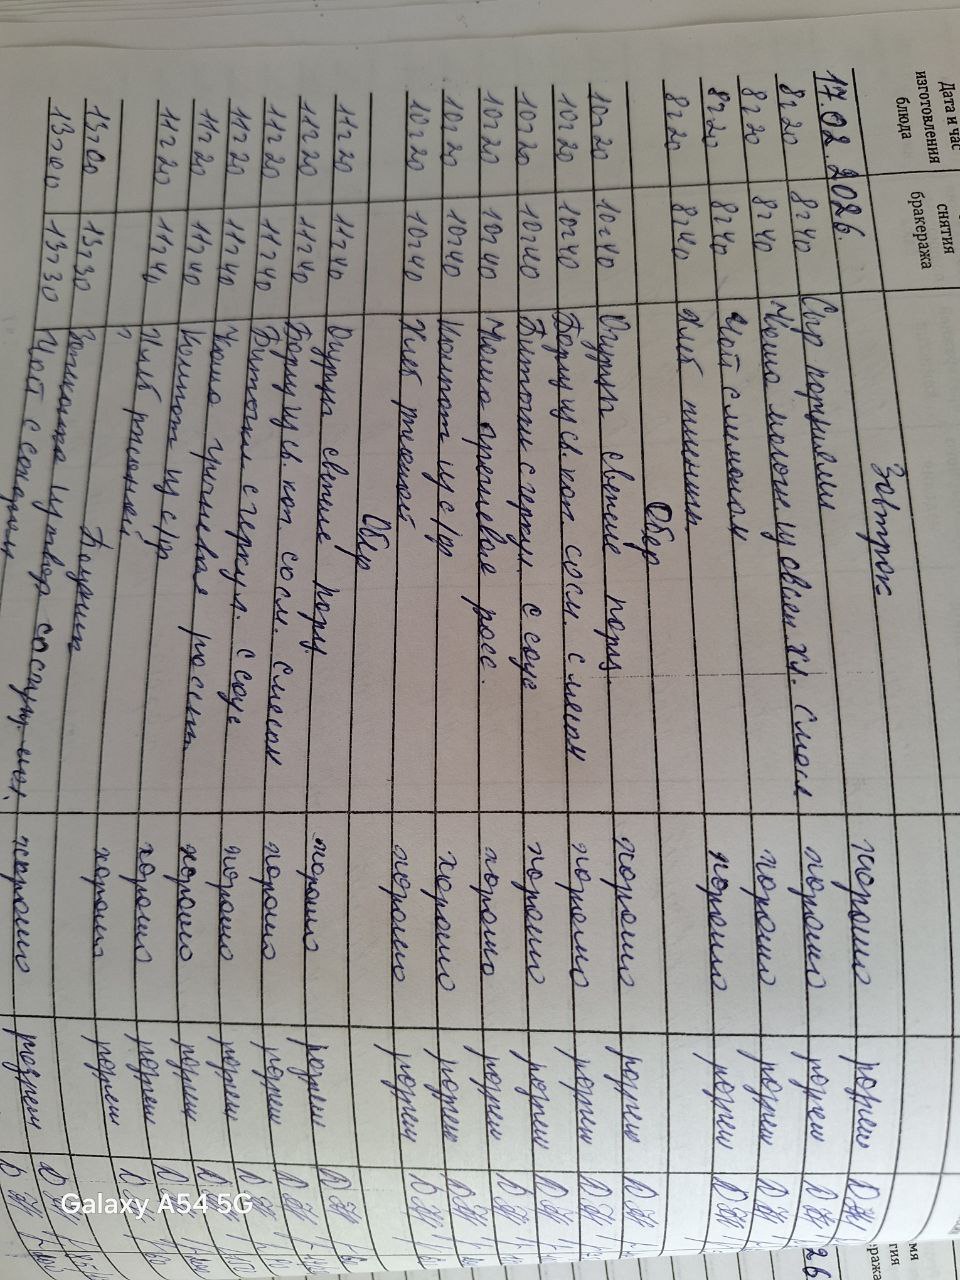 Дата и час изготовления блюда
снятия бракеража
17.02.2026.
Завтрак
8ч20 8ч40 Сыр порциями хорошо разреш
8ч20 8ч40 Каша молочн из овсян хл. с масл хорошо разреш
8ч20 8ч40 Чай с лимоном хорошо разреш
8ч20 8ч40 Хлеб пшеничн хорошо разреш
Обед
10ч20 10ч40 Огурцы свежие порц. хорошо разреш
10ч20 10ч40 Борщ из св. кап со см. с мясом хорошо разреш
10ч20 10ч40 Биточки с геркул. с соус хорошо разреш
10ч20 10ч40 Каша гречневая расс. хорошо разреш
10ч20 10ч40 Компот из с/фр хорошо разреш
10ч20 10ч40 Хлеб ржаной хорошо разреш
Обед
11ч20 11ч40 Огурцы свежие порц. хорошо разреш
11ч20 11ч40 Борщ из св. кап со см. с мясом хорошо разреш
11ч20 11ч40 Биточки с геркул. с соус хорошо разреш
11ч20 11ч40 Каша гречневая рассып хорошо разреш
11ч20 11ч40 Компот из с/фр хорошо разреш
11ч20 11ч40 Хлеб ржаной хорошо разреш
Полдник
13ч00 13ч30 Запеканка из твор со сгущ. мол. хорошо разреш
13ч00 13ч30 Чай с сахаром
Galaxy A54 5G